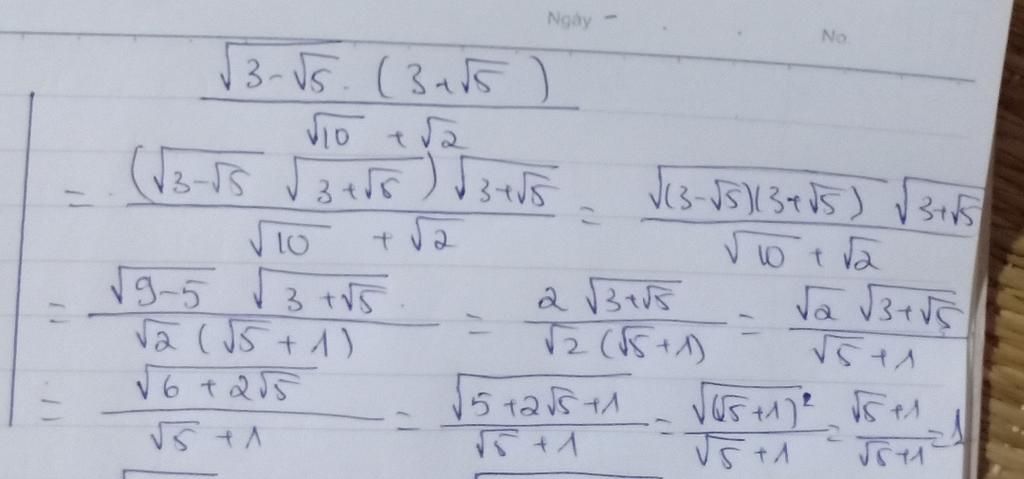 Ngày
No.
\frac{\sqrt{3-\sqrt{5}}.(3+\sqrt{5})}{\sqrt{10}+\sqrt{2}}
= \frac{(\sqrt{3-\sqrt{5}} \sqrt{3+\sqrt{5}})\sqrt{3+\sqrt{5}}}{\sqrt{10}+\sqrt{2}} = \frac{\sqrt{(3-\sqrt{5})(3+\sqrt{5})} \sqrt{3+\sqrt{5}}}{\sqrt{10}+\sqrt{2}}
= \frac{\sqrt{9-5} \sqrt{3+\sqrt{5}}}{\sqrt{2}(\sqrt{5}+1)} = \frac{2\sqrt{3+\sqrt{5}}}{\sqrt{2}(\sqrt{5}+1)} = \frac{\sqrt{2}\sqrt{3+\sqrt{5}}}{\sqrt{5}+1}
= \frac{\sqrt{6+2\sqrt{5}}}{\sqrt{5}+1} = \frac{\sqrt{5+2\sqrt{5}+1}}{\sqrt{5}+1} = \frac{\sqrt{(\sqrt{5}+1)^2}}{\sqrt{5}+1} = \frac{\sqrt{5}+1}{\sqrt{5}+1} = 1